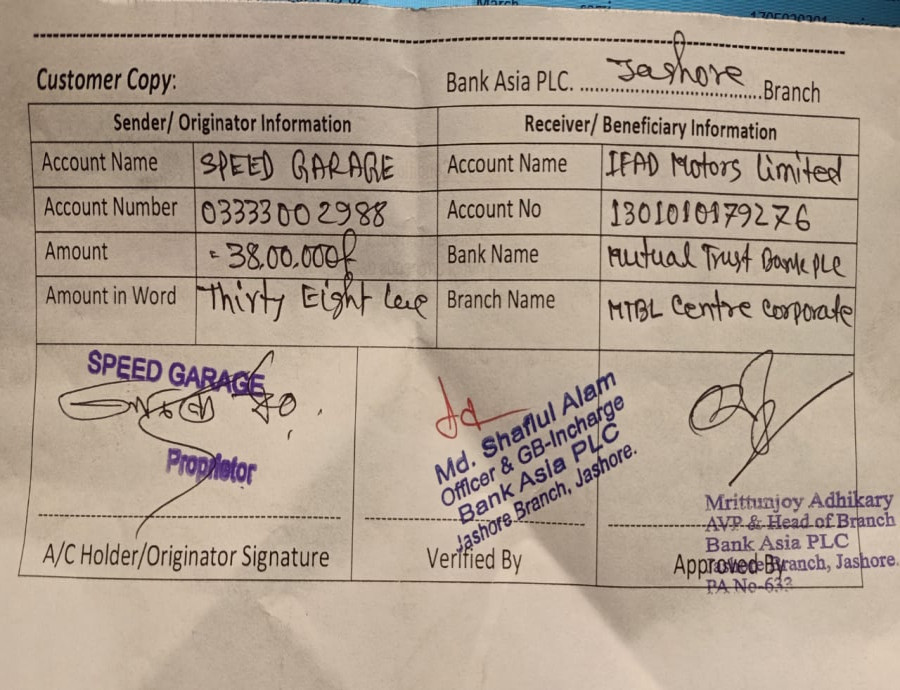 March
Customer Copy:
Bank Asia PLC. Jashore Branch
Sender/ Originator Information
Receiver/ Beneficiary Information
Account Name SPEED GARAGE Account Name IFAD Motors Limited
Account Number 03333002988 Account No 1301010179276
Amount = 38,00,000/- Bank Name Mutual Trust Bank PLC
Amount in Word Thirty Eight Lac Branch Name MTBL Centre Corporate
SPEED GARAGE
Proprietor
Md. Shaflul Alam
Officer & GB-Incharge
Bank Asia PLC
Jashore Branch, Jashore.
Mrittunjoy Adhikary
AVP & Head of Branch
Bank Asia PLC
Jashore Branch, Jashore.
PA No-633
A/C Holder/Originator Signature
Verified By
Approved By